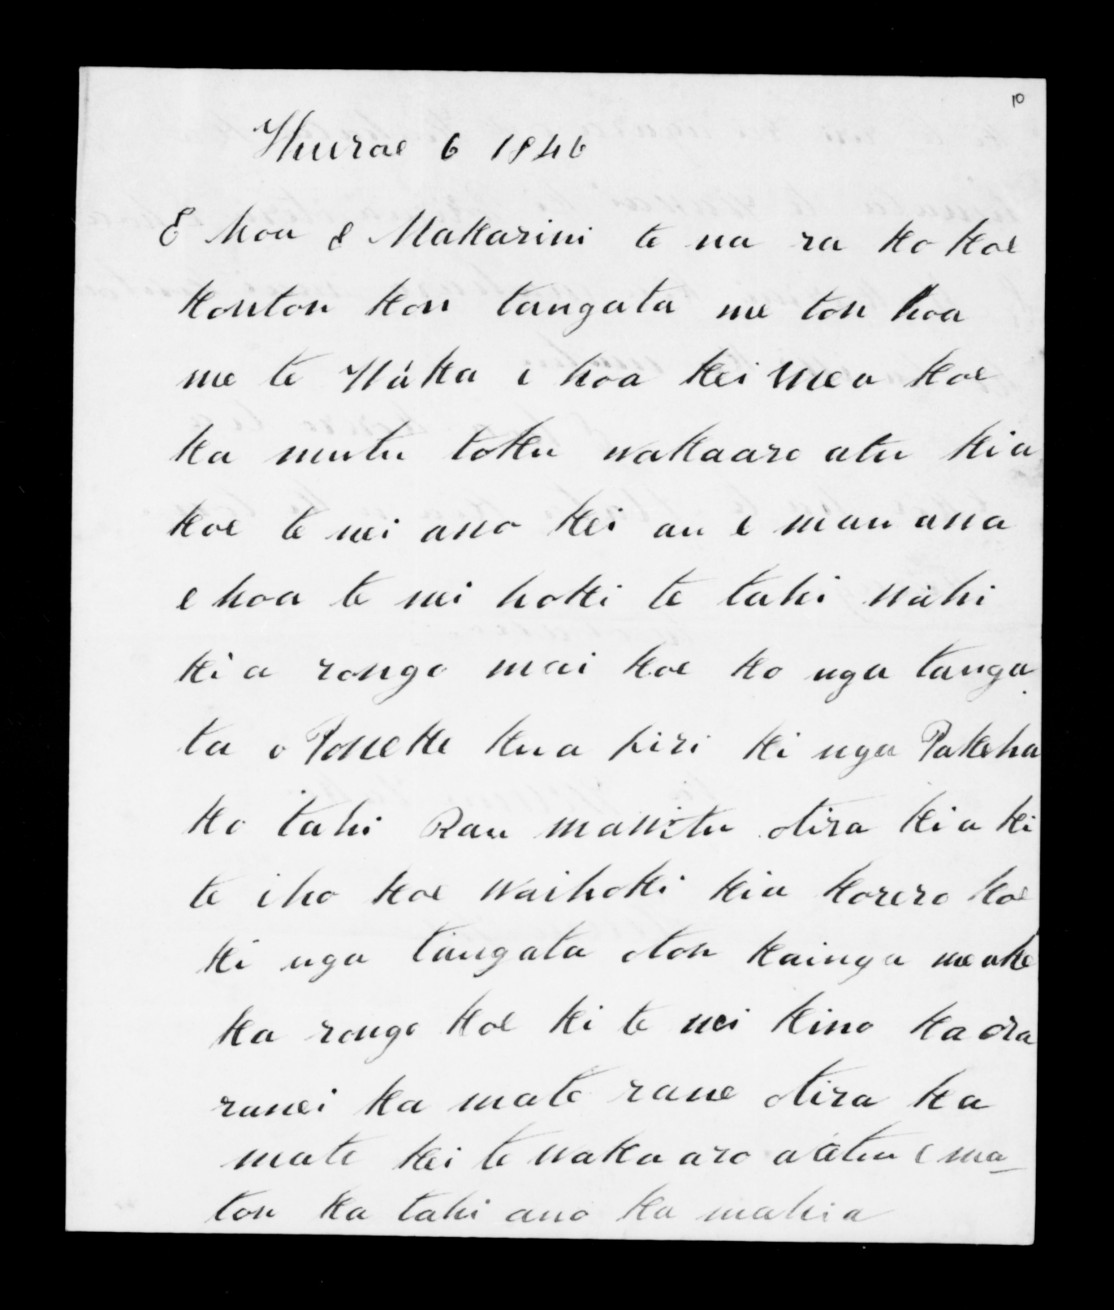 10
Hurae 6 1846
E hoa e Makarini te na ra ko koe
koutou kou tangata me tou hoa
me te Waka e hoa kei mea koe
ka mutu toku wakaaro atu kia
koe te nei ano kei au e mau ana
e hoa te nei hoki te tahi wahi
kia rongo mai koe ko nga tanga
ta o Poneke kua piri ki nga Pakeha
ko tahi Rau mawitu otira kia ki
te iho koe waihoki kia korero koe
ki nga tangata otou kainga meake
ka rongo koe ki te nei kino ka ora
ranei ka mate rane otira ka
mate kei te wakaaro atetu e ma
tou ka tahi ano ka mahia